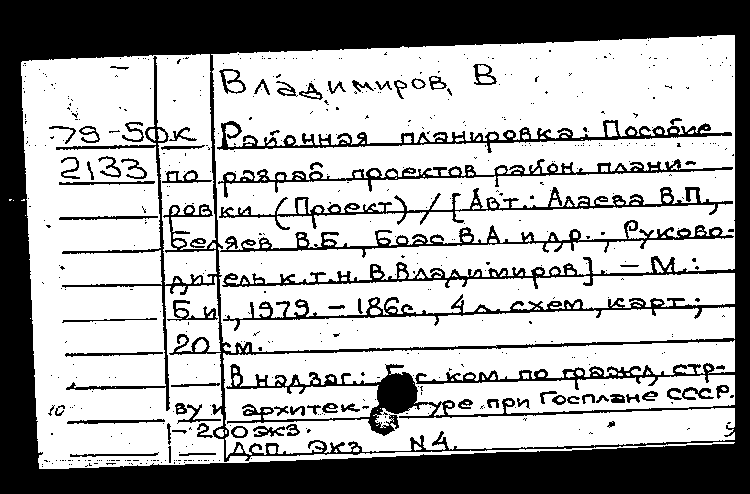 Владимиров, В
79-5ФК Районная планировка: Пособие
2133 по разраб. проектов район. плани-
ровки (Проект) / [Авт.: Алаева В.П.,
Беляев В.Б., Боас В.А. и др.; Руково-
дитель к.т.н. В.Владимиров]. - М.:
Б.и., 1979. - 186с., 4 л. схем, карт;
20 см.
В надзаг.: ком. по гражд. стр-
10 ву и архитек- туре при Госплане СССР.
- 200 экз.
Дсп. Экз N4.